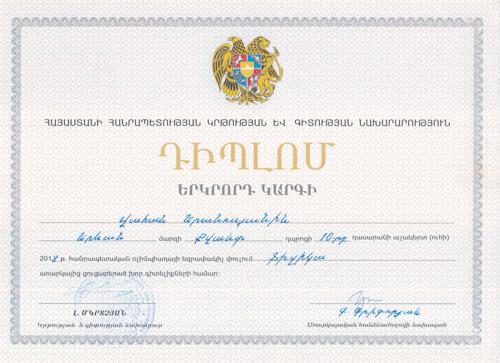 ՀԱՅԱՍՏԱՆԻ ՀԱՆՐԱՊԵՏՈՒԹՅԱՆ ԿՐԹՈՒԹՅԱՆ ԵՎ ԳԻՏՈՒԹՅԱՆ ՆԱԽԱՐԱՐՈՒԹՅՈՒՆ
ԴԻՊԼՈՄ
ԵՐԿՐՈՐԴ ԿԱՐԳԻ
Վահան
Երևան մարզի Քվանտ դպրոցի 10րդ դասարանի աշակերտ (ուհի)
2018 թ. հանրապետական օլիմպիադայի եզրափակիչ փուլում Ֆիզիկա
առարկայից ցուցաբերած խոր գիտելիքների համար:
Լ. ՄԿՐՏՉՅԱՆ Գ. Գրիգորյան
Կրթության և գիտության նախարար Առարկայական հանձնաժողովի նախագահ